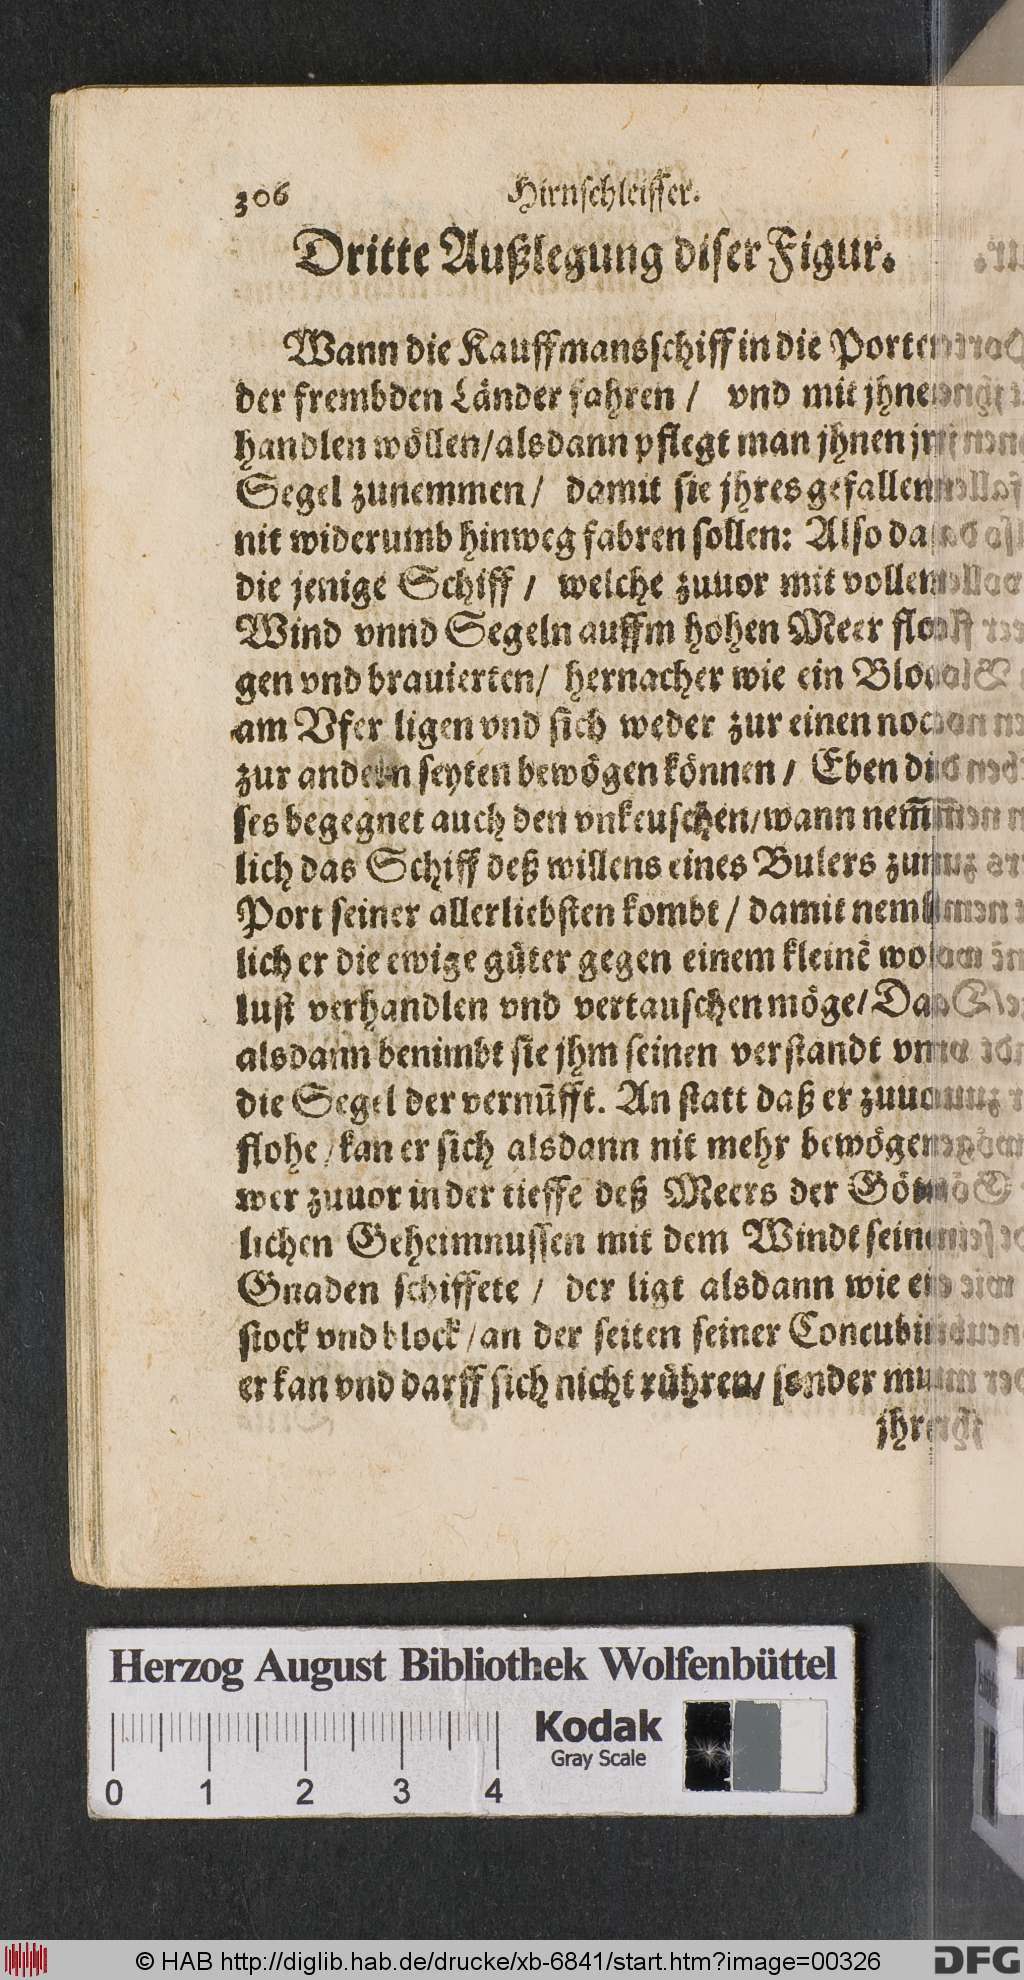 306 Hirnſchleiffer.
Dritte Außlegung diſer Figur.
Wann die Kauffmansſchiff in die Porten
der frembden Länder fahren / vnd mit jhnen
handlen wöllen/alsdann pflegt man jhnen jr
Segel zunemmen / damit ſie jhres gefallen
nit widerumb hinweg fahren ſollen: Alſo da
die jenige Schiff / welche zuuor mit vollem
Wind vnnd Segeln auffm hohen Meer flo
gen vnd brauierten/ hernacher wie ein Bloc
am Vfer ligen vnd ſich weder zur einen noc
zur andern ſeyten bewögen können / Eben di
ſes begegnet auch den vnkeuſchen/wann nem̅
lich das Schiff deß willens eines Bulers zum
Port ſeiner allerliebſten kombt / damit nemb
lich er die ewige güter gegen einem kleinē wol
luſt verhandlen vnd vertauſchen möge/ Da
alsdann benimbt ſie jhm ſeinen verſtandt vn
die Segel der vernūfft. An ſtatt daß er zuuo
flohe / kan er ſich alsdann nit mehr bewögen
wer zuuor in der tieffe deß Meers der Göt
lichen Geheimnuſſen mit dem Windt ſeine
Gnaden ſchiffete / der ligt alsdann wie ei
ſtock vnd block / an der ſeiten ſeiner Concubi
er kan vnd darff ſich nicht rühren/ ſonder mu
jhr
Herzog August Bibliothek Wolfenbüttel
0 1 2 3 4
Kodak
Gray Scale
© HAB http://diglib.hab.de/drucke/xb-6841/start.htm?image=00326
DFG